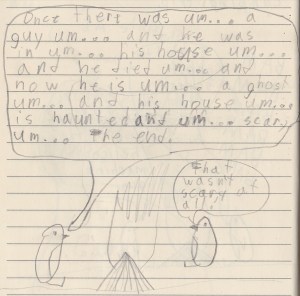 Once there was um... a
guy um... and he was
in um... his house um...
and he died um... and
now he is um... a ghost
um... and his house um...
is haunted and um... scary
um... The end.
That
wasn't
scary at
all!